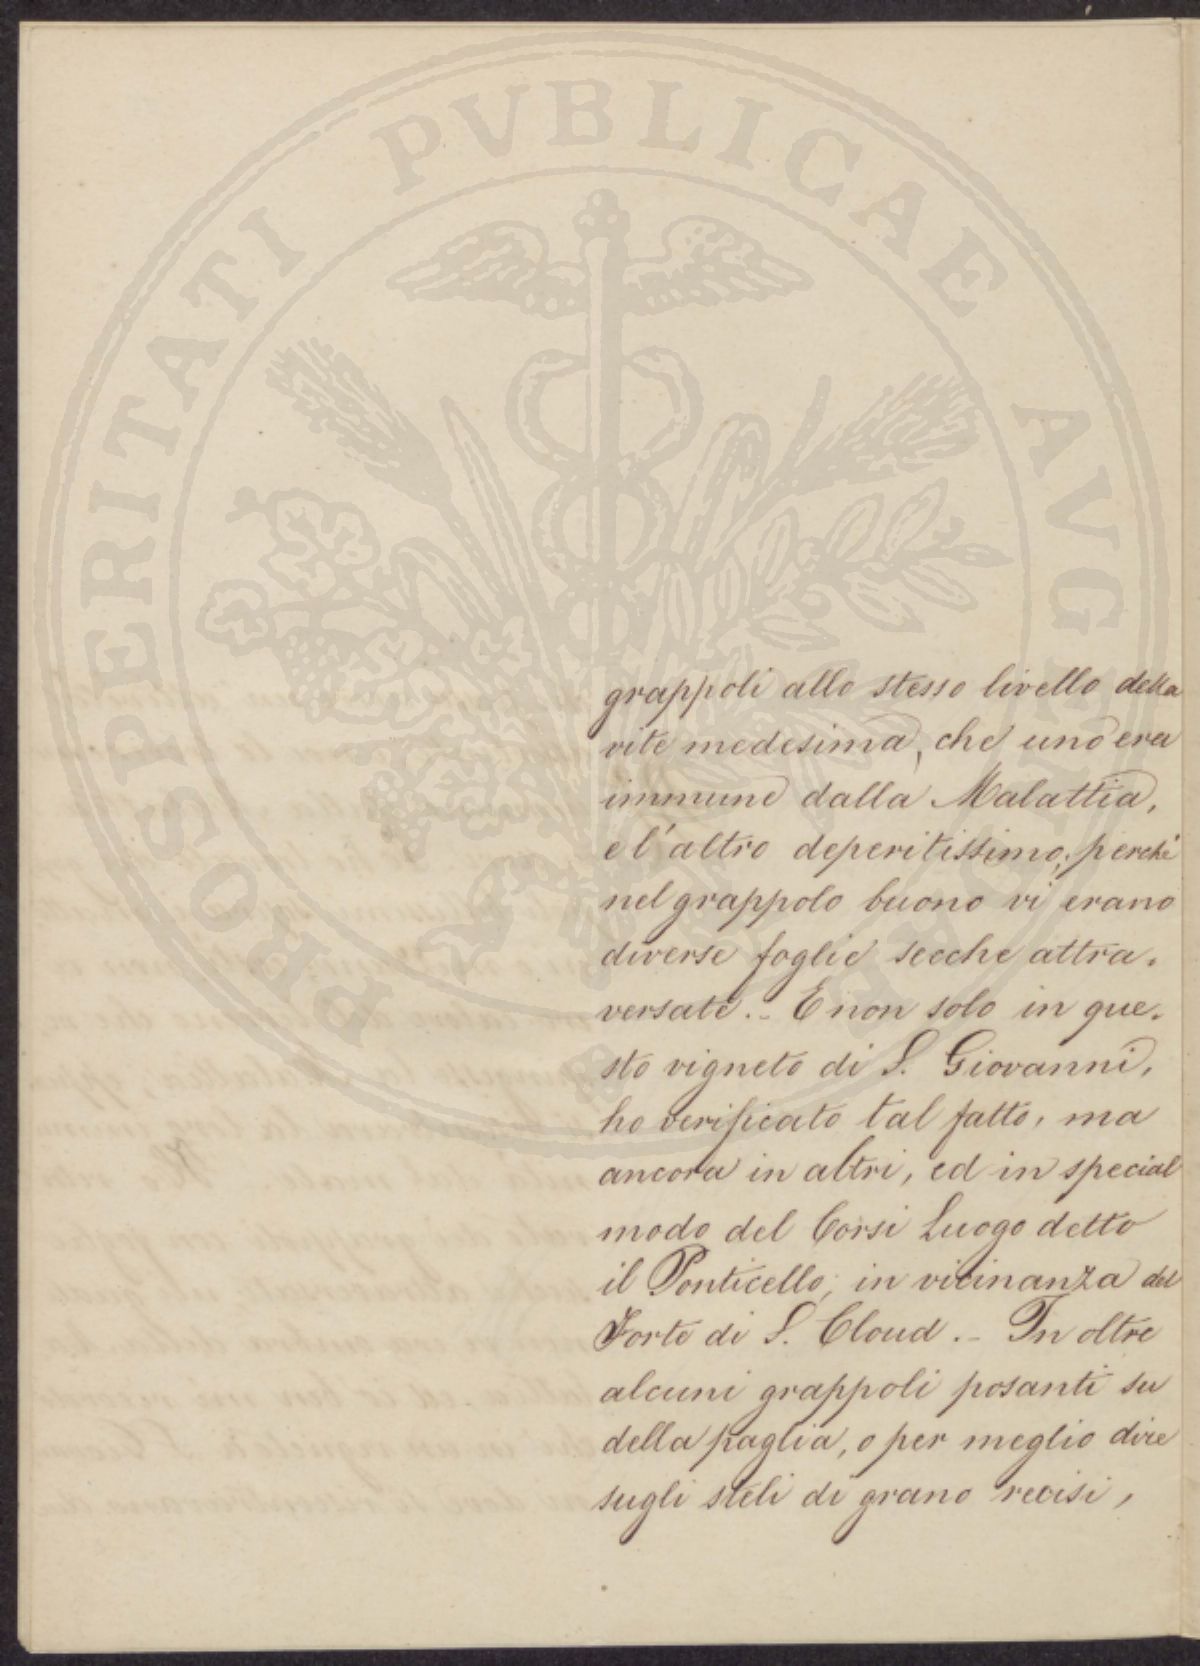 PROSPERITATI PVBLICAE AVGENDAE
grappoli allo stesso livello della
vite medesima, che uno era
immune dalla Malattia,
e l'altro deperitissimo; perchè
nel grappolo buono vi erano
diverse foglie secche attra-
versate.- E non solo in que-
sto vigneto di S. Giovanni,
ho verificato tal fatto, ma
ancora in altri, ed in special
modo del Corsi Luogo detto
il Ponticello, in vicinanza del
Forte di S. Cloud.- In oltre
alcuni grappoli posanti su
della paglia, o per meglio dire
sugli steli di grano recisi,